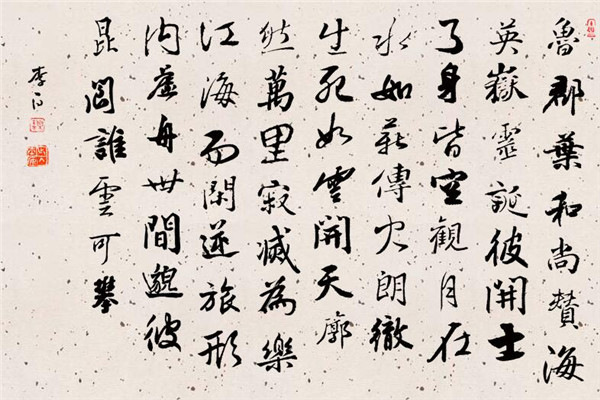 魯郡葉和尚贊海
英嶽靈誕彼開士
了身皆空觀月在
水如薪傳火朗徹
生死如雲開天廓
然萬里寂滅為樂
江海而閑逆旅形
內虛舟世間邈彼
昆閬誰雲可攀
李白